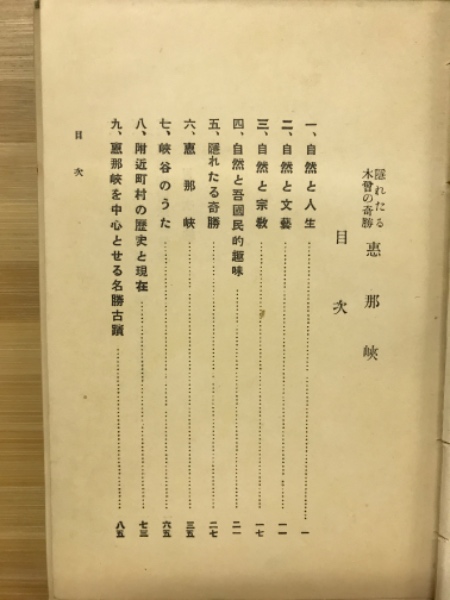 隠れたる
木曾の奇勝
惠那峽
目次
一、自然と人生 一
二、自然と文藝 一一
三、自然と宗敎 一七
四、自然と吾國民的趣味 二一
五、隠れたる奇勝 二七
六、惠那峽 三五
七、峽谷のうた 六五
八、附近町村の歷史と現在 七三
九、惠那峽を中心とせる名勝古蹟 八五
目次